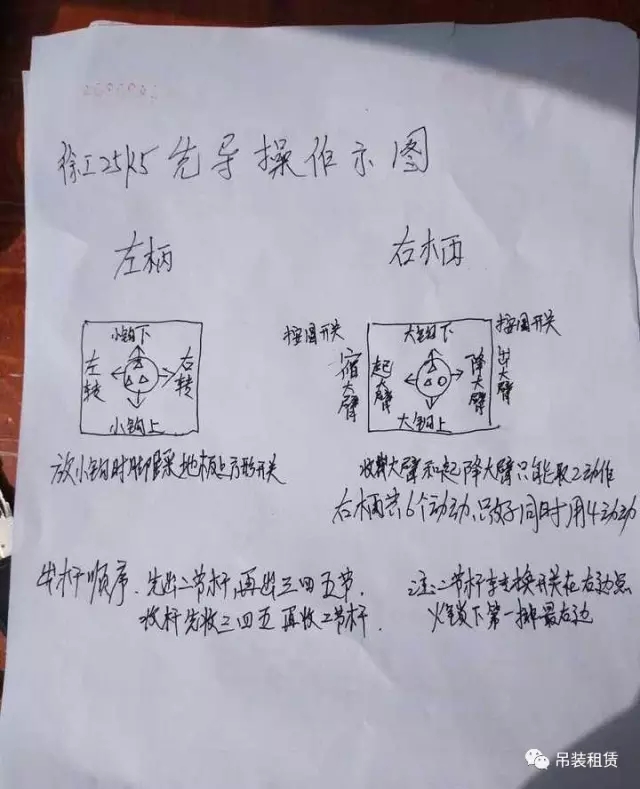 徐工25K5先导操作示图
左柄
右柄
小钩下
左转
右转
小钩上
按钮开关
大钩下
按钮开关
宿大臂
起大臂
降大臂
出大臂
大钩上
放小钩时脚踩地板上方形开关
收大臂和起降大臂只能取2动作
右柄共6个动动,只好同时用4动动
出杆顺序.先出二节杆,再出三四五节.
收杆先收三四五再收二节杆.
注:二节杆切换开关在右边点
火锁下第一排最右边
吊装租赁